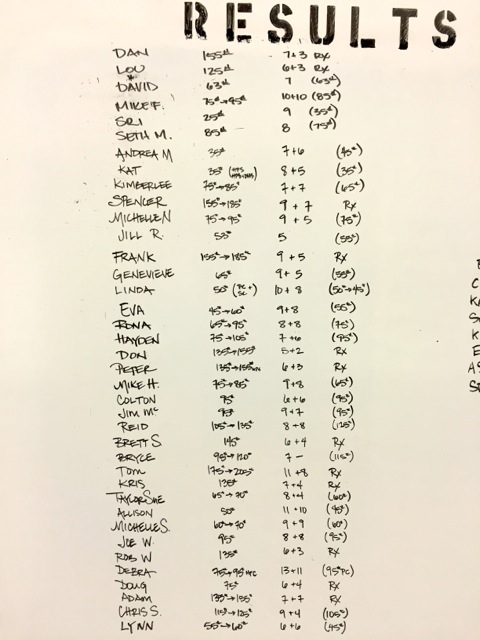 RESULTS
DAN 155# 7+3 RX
LOU 125# 6+3 RX
DAVID 63# 7 (63#)
MIKE F. 75#→95# 10+10 (85#)
SRI 25# 9 (35#)
SETH M. 85# 8 (75#)
ANDREA M 35# 7+6 (45#)
KAT 35# 8+5 (35#)
KIMBERLEE 75#→85# 7+7 (65#)
SPENCER 155#→185# 9+7 RX
MICHELLE N 75#→95# 9+5 (75#)
JILL R. 55# 5 (55#)
FRANK 155#→185# 9+5 RX
GENEVIEVE 65# 9+5 (55#)
LINDA 50# 10+8 (50#→45#)
EVA 45#→60# 9+8 (55#)
RONA 65#→95# 8+8 (75#)
HAYDEN 75#→105# 7+6 (95#)
DON 135#→155# 5+2 RX
PETER 135#→155# 6+3 RX
MIKE H. 75#→85# 9+8 (65#)
COLTON 95# 6+6 (95#)
JIM MC 95# 9+7 (95#)
REID 105#→135# 8+8 (125#)
BRETT S 145# 6+4 RX
BRYCE 95#→120# 7 – (115#)
TOM 175#→205# 11+8 RX
KRIS 135# 7+4 RX
TAYLOR SUE 65#→70# 8+4 (60#)
ALLISON 50# 11+10 (45#)
MICHELLE S. 60#→70# 9+9 (60#)
JOE W. 95# 8+8 (95#)
ROB W 135# 6+3 RX
DEBRA 75#→95# 13+11 (95# PC)
DOUG 75# 6+4 RX
ADAM 135#→155# 7+7 RX
CHRIS S. 115#→125# 9+4 (105#)
LYNN 55#→60# 6+6 (45#)